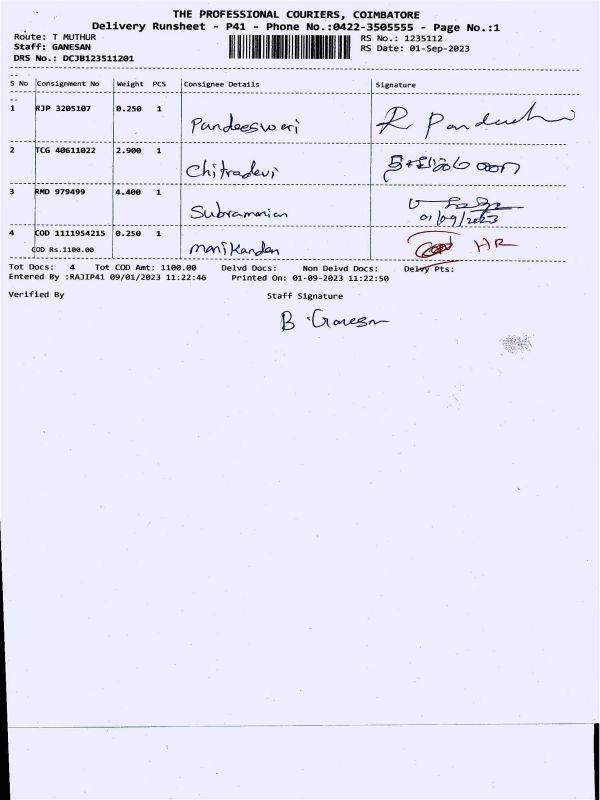 THE PROFESSIONAL COURIERS, COIMBATORE
Delivery Runsheet - P41 - Phone No.:0422-3505555 - Page No.:1
Route: T MUTHUR RS No.: 1235112
Staff: GANESAN RS Date: 01-Sep-2023
DRS No.: DCJB123511201
S No Consignment No Weight PCS Consignee Details Signature
1 RJP 3205107 0.250 1 Pandeeswari R Pandeeshi
2 TCG 40611022 2.900 1 Chitradevi
3 RMD 979499 4.400 1 Subramanian
01/09/2023
4 COD 1111954215 0.250 1 Manikandan HR
COD Rs.1100.00
Tot Docs: 4 Tot COD Amt: 1100.00 Delvd Docs: Non Delvd Docs: Delvy Pts:
Entered By :RAJIP41 09/01/2023 11:22:46 Printed On: 01-09-2023 11:22:50
Verified By Staff Signature
B. Ganesan